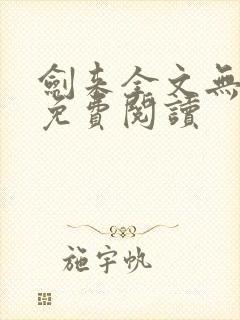 劍来全文無
免費閱讀
施宇帆